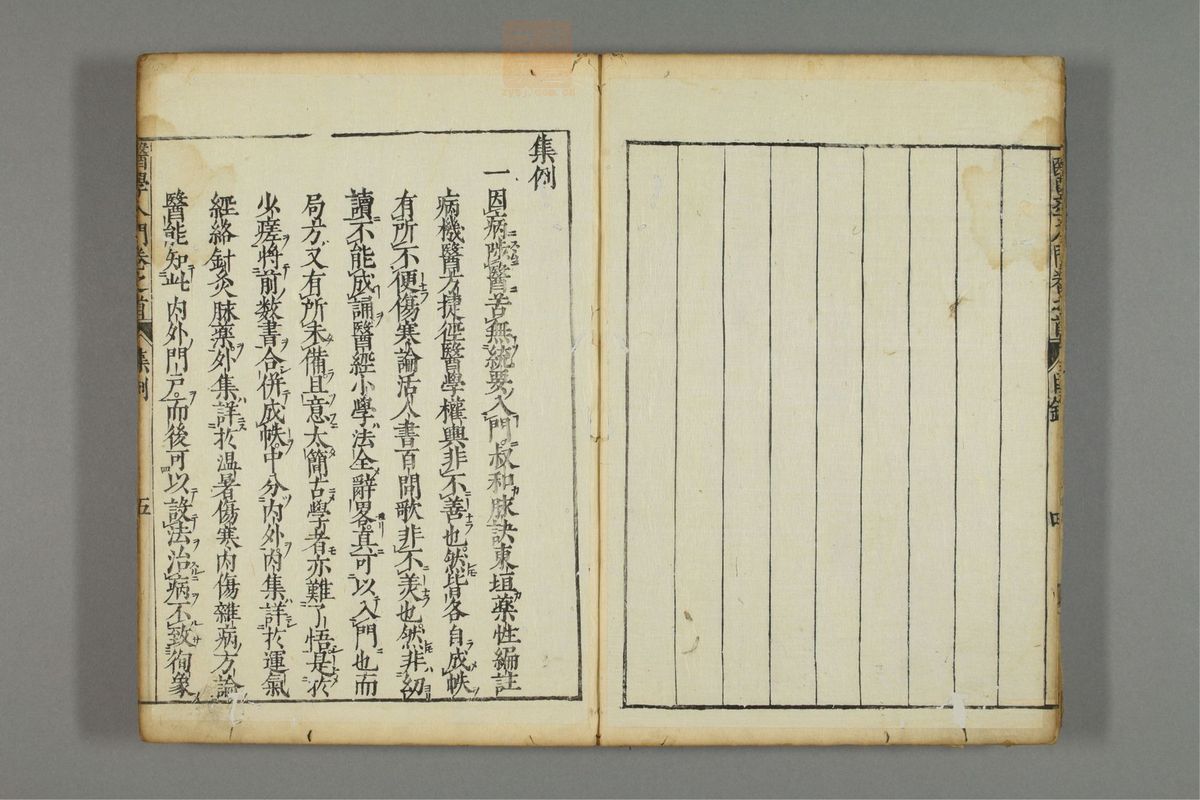 醫學入門卷之首 目錄 四
集例
一因病陟醫苦無統要入門叔和脉訣東垣藥性編註
病機醫方捷徑醫學權輿非不善也然皆各自成帙
有所不便傷寒論活人書百問歌非不美也然非幼
讀不能成誦醫經小學法全辭畧真可以入門也而
局方又有所未備且意太簡古學者亦難了悟是於
少瘥將前数書合併成帙中分內外內集詳於運氣
經絡針灸脉藥外集詳於溫暑傷寒內傷雜病方論
醫能知此內外門戶而後可以設法治病不致徇象
醫學入門卷之首 集例 五